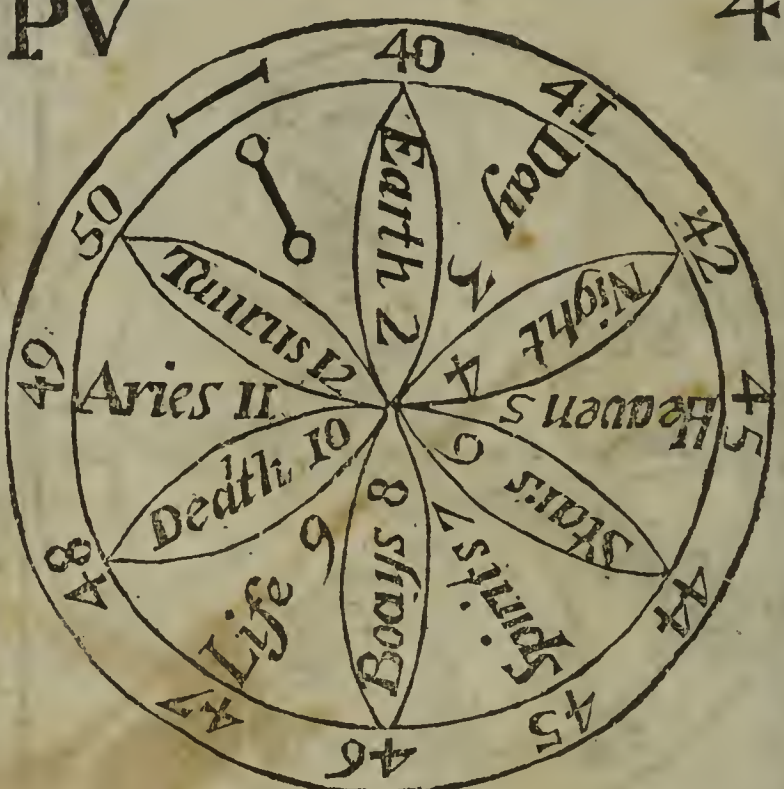 PV
4
40
41
42
45
44
45
46
47
48
49
50
Earth 2
Day 3
Night 4
Heaven 5
Stars 6
Spirits 7
Bodys 8
Life 9
Death 10
Aries 11
Taurus 12